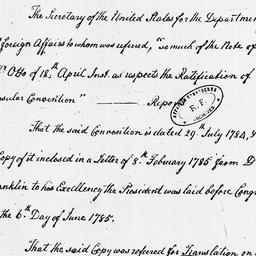 The Secretary of the United States for the Departmen
Foreign Affairs to whom was referred, "so much of the Note of
Otto of 18th April Inst. as respects the Ratification of
sular Convention" ——— Repo
R.F.
That the said Convention is dated 29th July 1784, 
Copy of it inclosed in a Letter of 8th February 1785 from D
anklin to his Excellency the President was laid before Congr
the 6th Day of June 1785.
That the said Copy was referred for Translation on